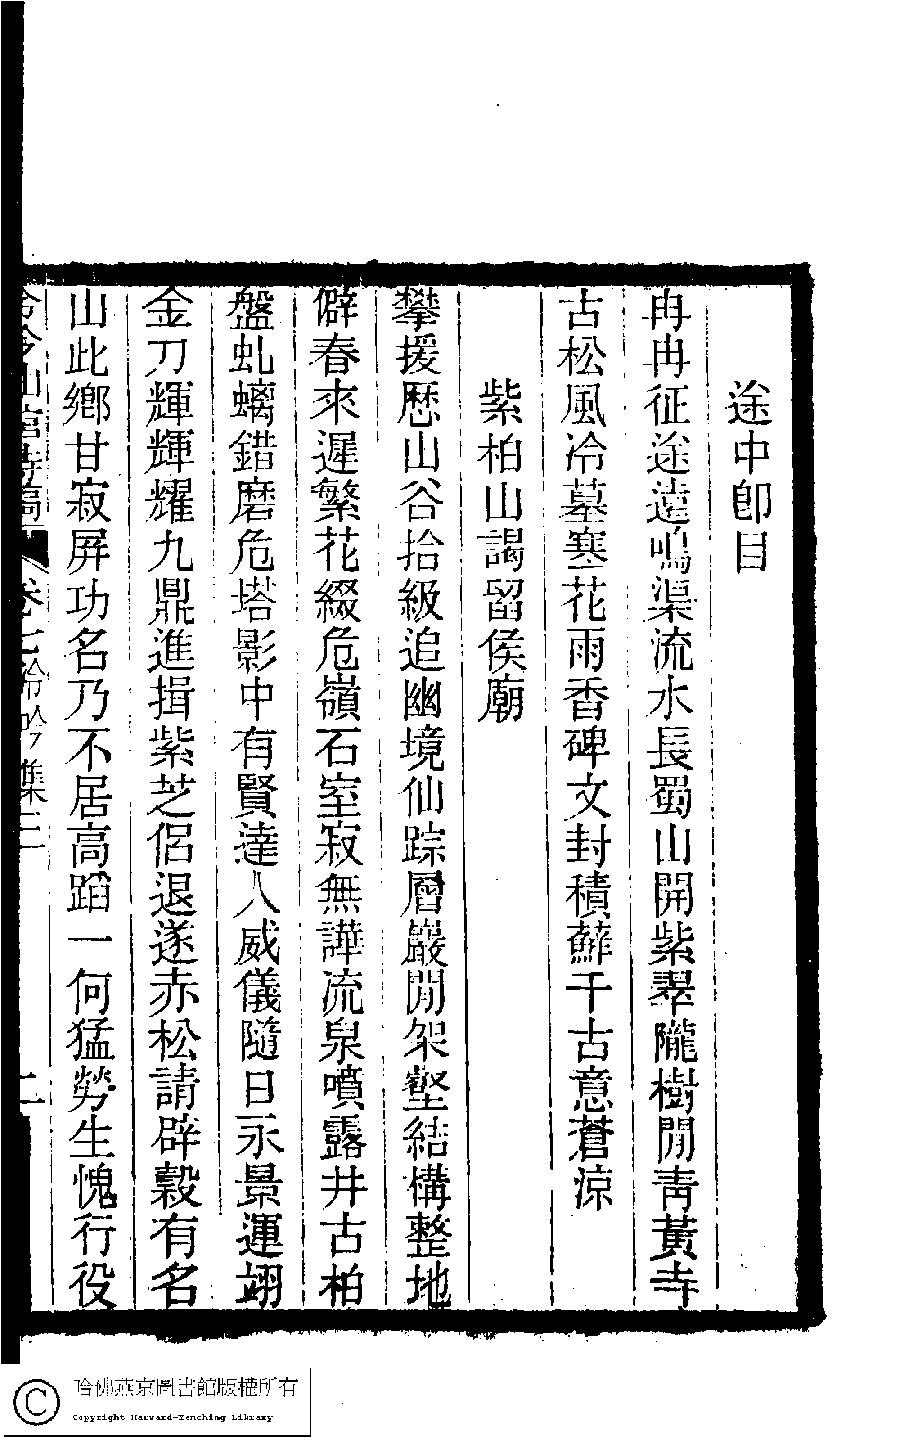 途中卽目
冉冉征途遠鳴渠流水長蜀山開紫翠隴樹閒靑黃寺
古松風冷墓寒花雨香碑文封積蘚千古意蒼涼
紫柏山謁留侯廟
攀援歷山谷拾級追幽境仙踪層巖閒架壑結構整地
僻春來遲繁花綴危嶺石室寂無譁流泉噴露井古柏
盤虬螭錯磨危塔影中有賢達人威儀隨日永景運翊
金刀輝輝耀九鼎進揖紫芝侶退遂赤松請辟穀有名
山此鄉甘寂屏功名乃不居高蹈一何猛勞生愧行役
泠泠山館詩稿 卷七泠吟集三 二
哈佛燕京圖書館版權所有
Copyright Harvard-Yenching Library